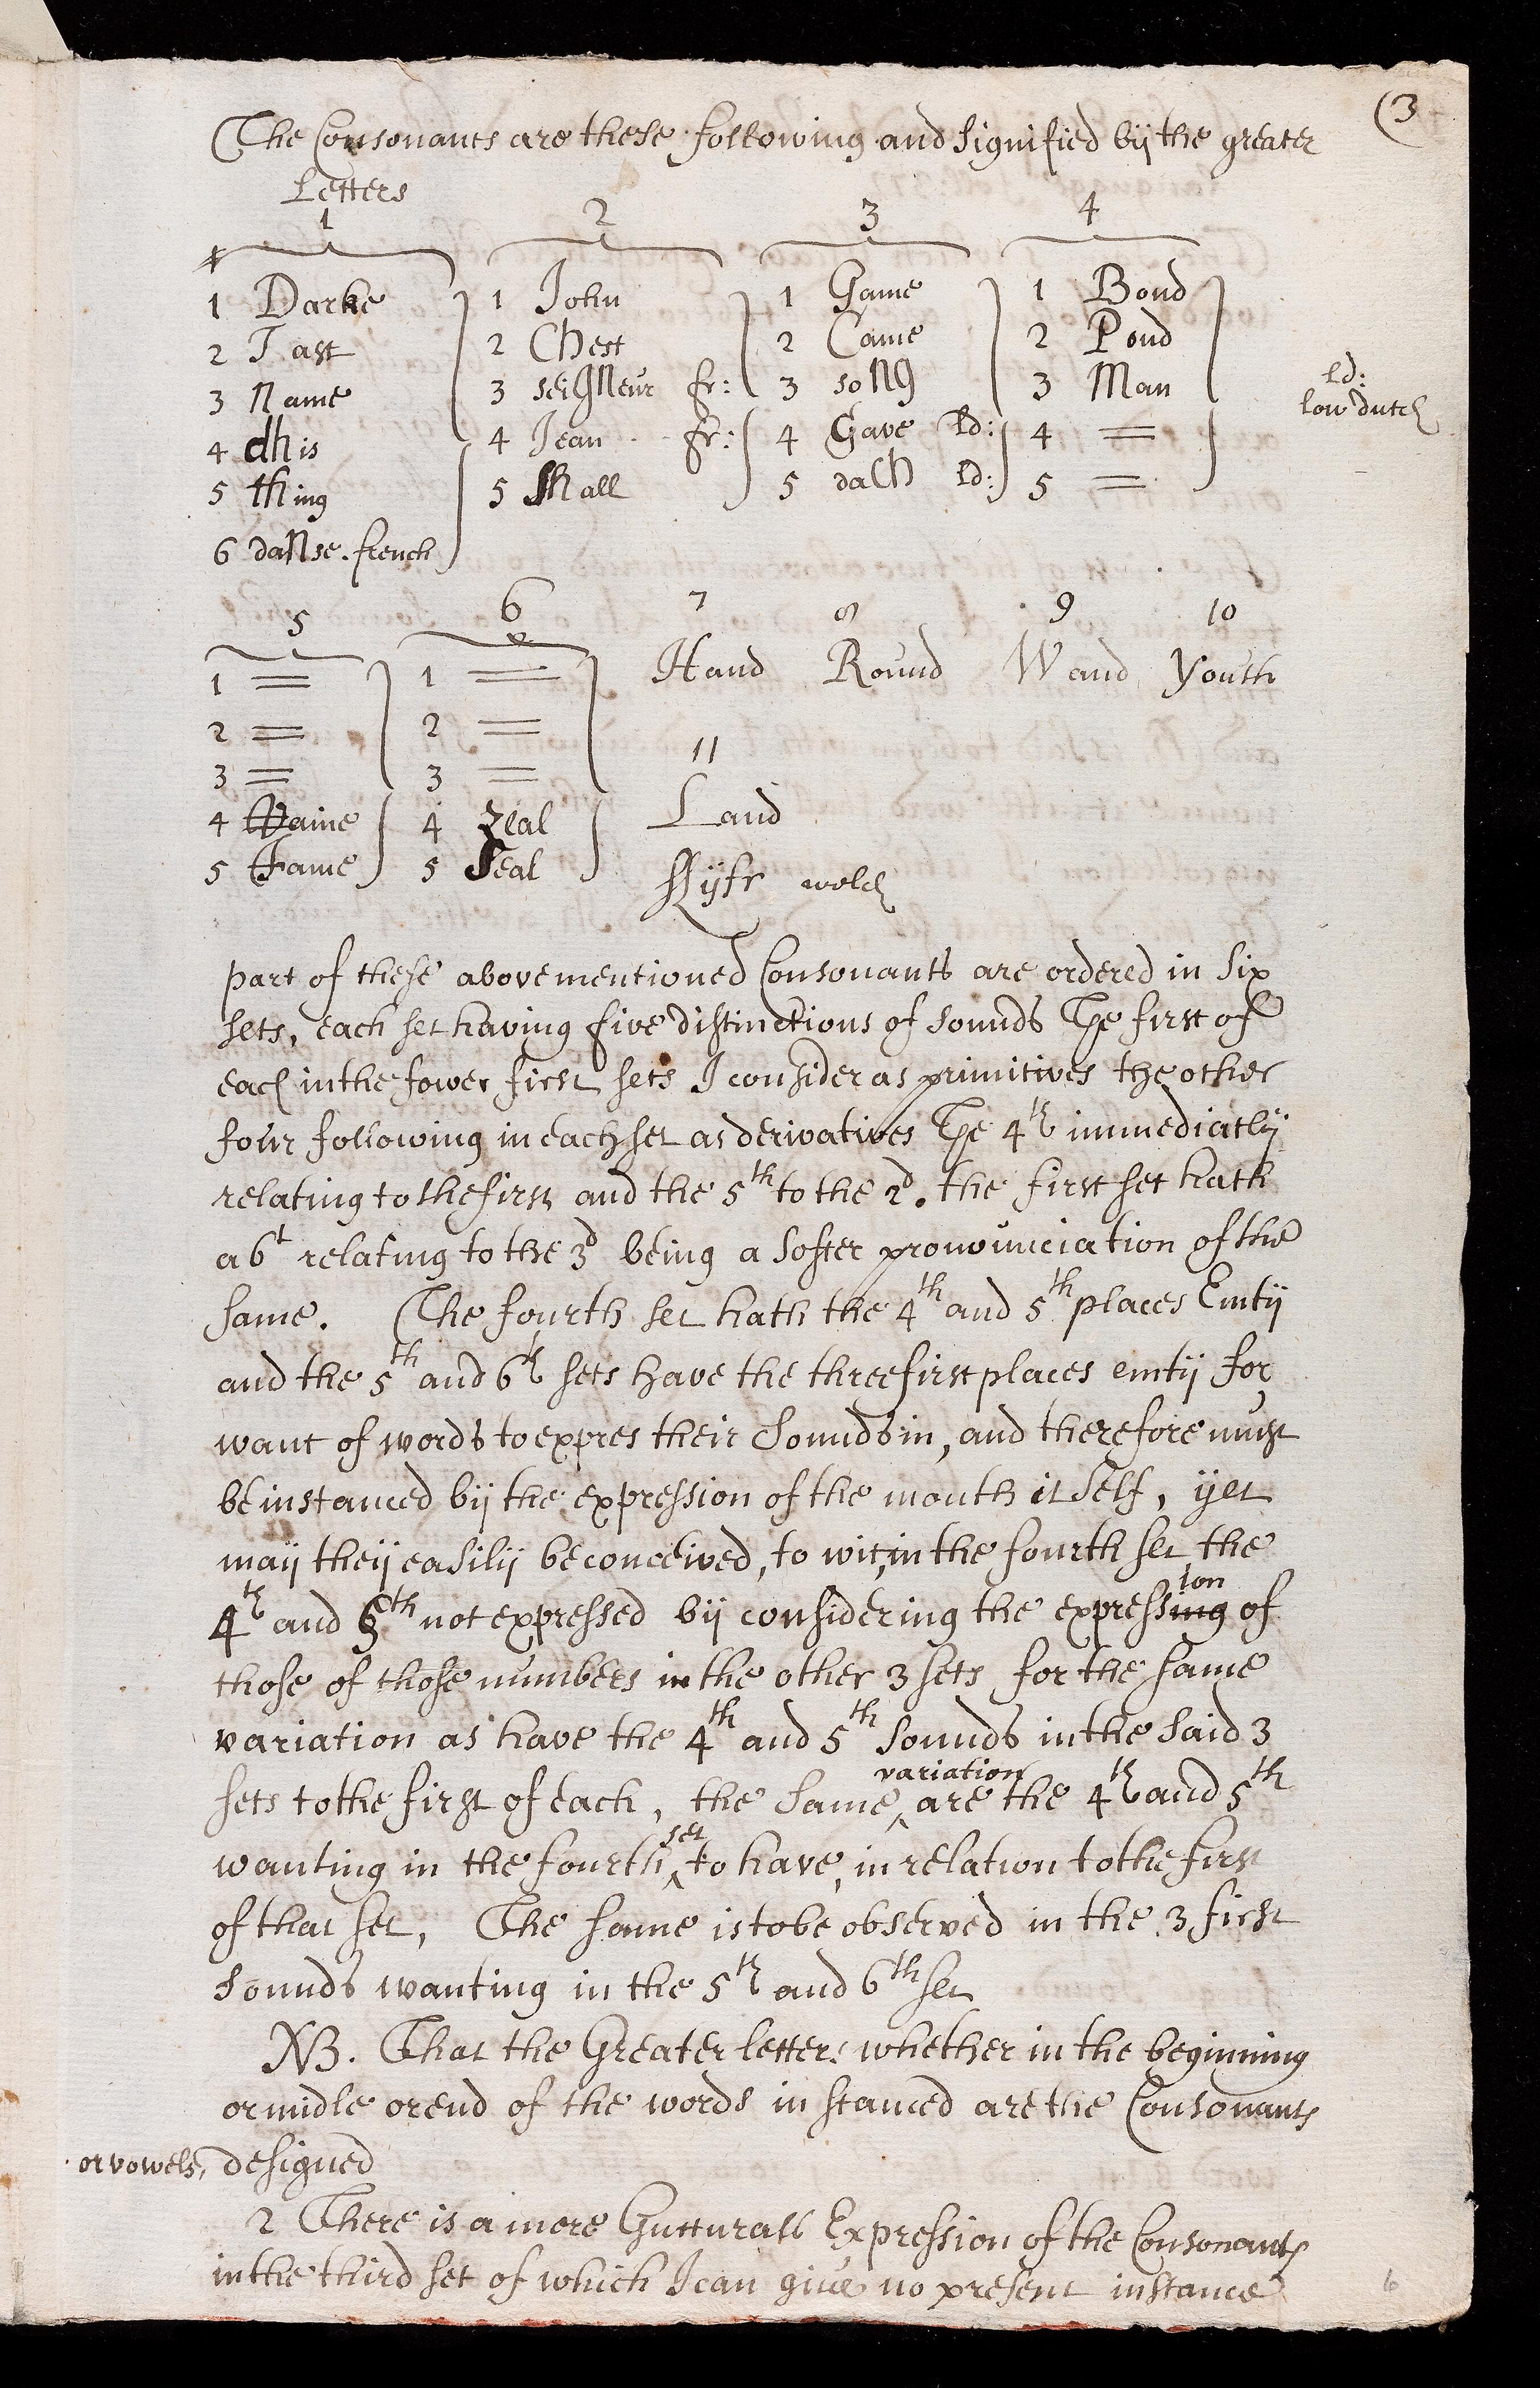 (3
The Consonants are these following and signified bij the greater
Letters
1 2 3 4
1 Darke 1 John 1 Game 1 Bond
2 Tast 2 CHest 2 Came 2 Pond
3 Name 3 seiGNeur fr: 3 soNG 3 Man
ld:
low dutch
4 dhis 4 Jean fr: 4 Gave ld: 4 =
5 thing 5 SHall 5 daCH ld: 5 =
6 daNse. french
5 6 7 8 9 10
1 = 1 = Hand Round Wand Youth
2 = 2 =
11
3 = 3 =
4 Vaine 4 Zeal Land
5 Fame 5 Seal
welch
part of these above mentioned Consonants are ordered in six
sets, each set having five distinctions of sounds The first of
each in the fower first sets I consider as primitives the other
four following in each set as derivatives The 4th immediatlij
relating to the first and the 5th to the 2d. the first set hath
a 6t relating to the 3d being a softer pronounciation of the
same. The fourth set hath the 4th and 5th places Emtij
and the 5th and 6th sets have the three first places emtij for
want of words to expres their Sounds in, and therefore must
be instanced bij the expression of the mouth it self, ijet
maij theij easilij be conceived, to wit, in the fourth set the
4th and 5th not expressed bij considering the expressing ion of
those of those numbers in the other 3 sets for the same
variation as have the 4th and 5th sounds in the said 3
sets to the first of each, the same variation are the 4th and 5th
wanting in the fourth set to have, in relation to the first
of that set, The same is to be observed in the 3 first
Sounds wanting in the 5th and 6th set
NB. That the Greater letter: whether in the beginning
or midle or end of the words instanced are the Consonants
or vowels, designed
2 There is a more Gutturall Expression of the Consonants
in the third set of which I can give no present instance
6